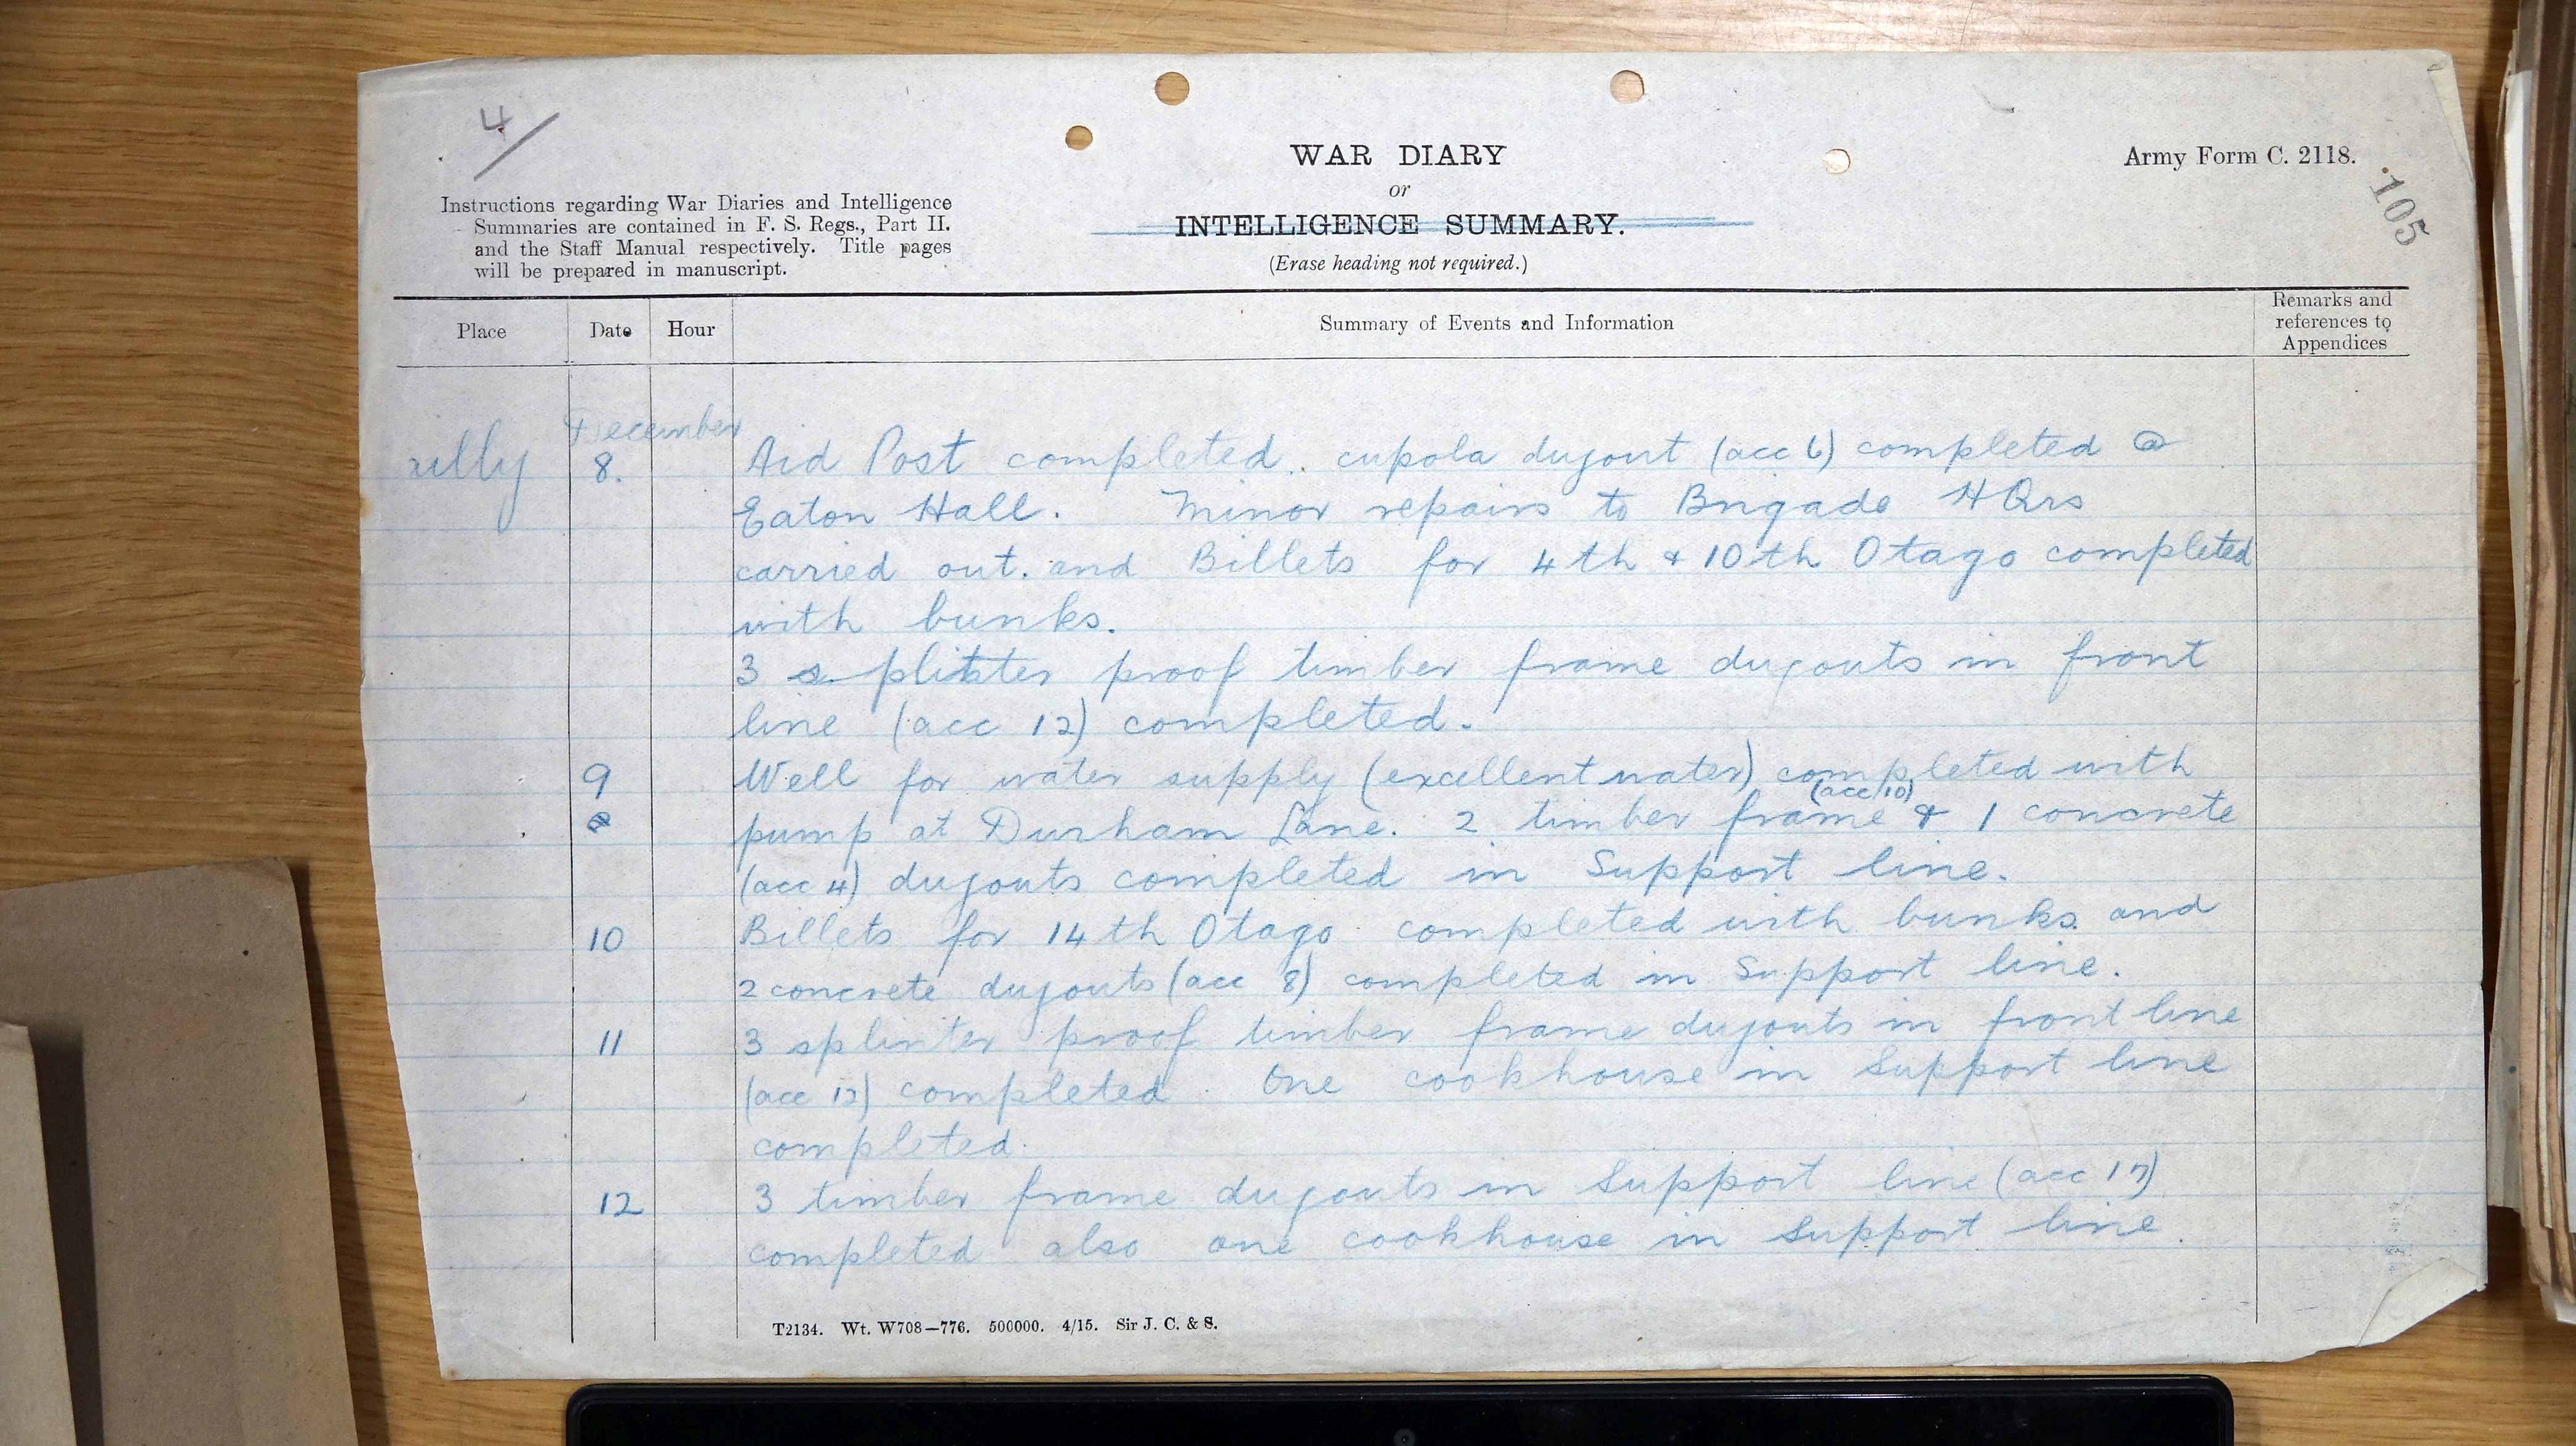 4/
WAR DIARY
or
INTELLIGENCE SUMMARY.
(Erase heading not required.)
Army Form C. 2118.
105
Instructions regarding War Diaries and Intelligence
Summaries are contained in F. S. Regs., Part II.
and the Staff Manual respectively. Title pages
will be prepared in manuscript.
Place Date Hour Summary of Events and Information Remarks and
references to
Appendices
December
illy 8. Aid Post completed. cupola dugout (acc 6) completed @
Eaton Hall. Minor repairs to Brigade HQrs
carried out. and Billets for 4th & 10th Otago completed
with bunks.
3 splitter proof timber frame dugouts in front
line (acc 12) completed.
9 Well for water supply (excellent water) completed with
(acc 10)
pump at Durham Lane. 2 timber frame & 1 concrete
(acc 4) dugouts completed in Support line.
10 Billets for 14th Otago completed with bunks and
2 concrete dugouts (acc 8) completed in Support line.
11 3 splinter proof timber frame dugouts in front line
(acc 12) completed. One cookhouse in Support line
completed.
12 3 timber frame dugouts in Support line (acc 17)
completed also one cookhouse in Support line.
T2134. Wt. W708—776. 500000. 4/15. Sir J. C. & S.